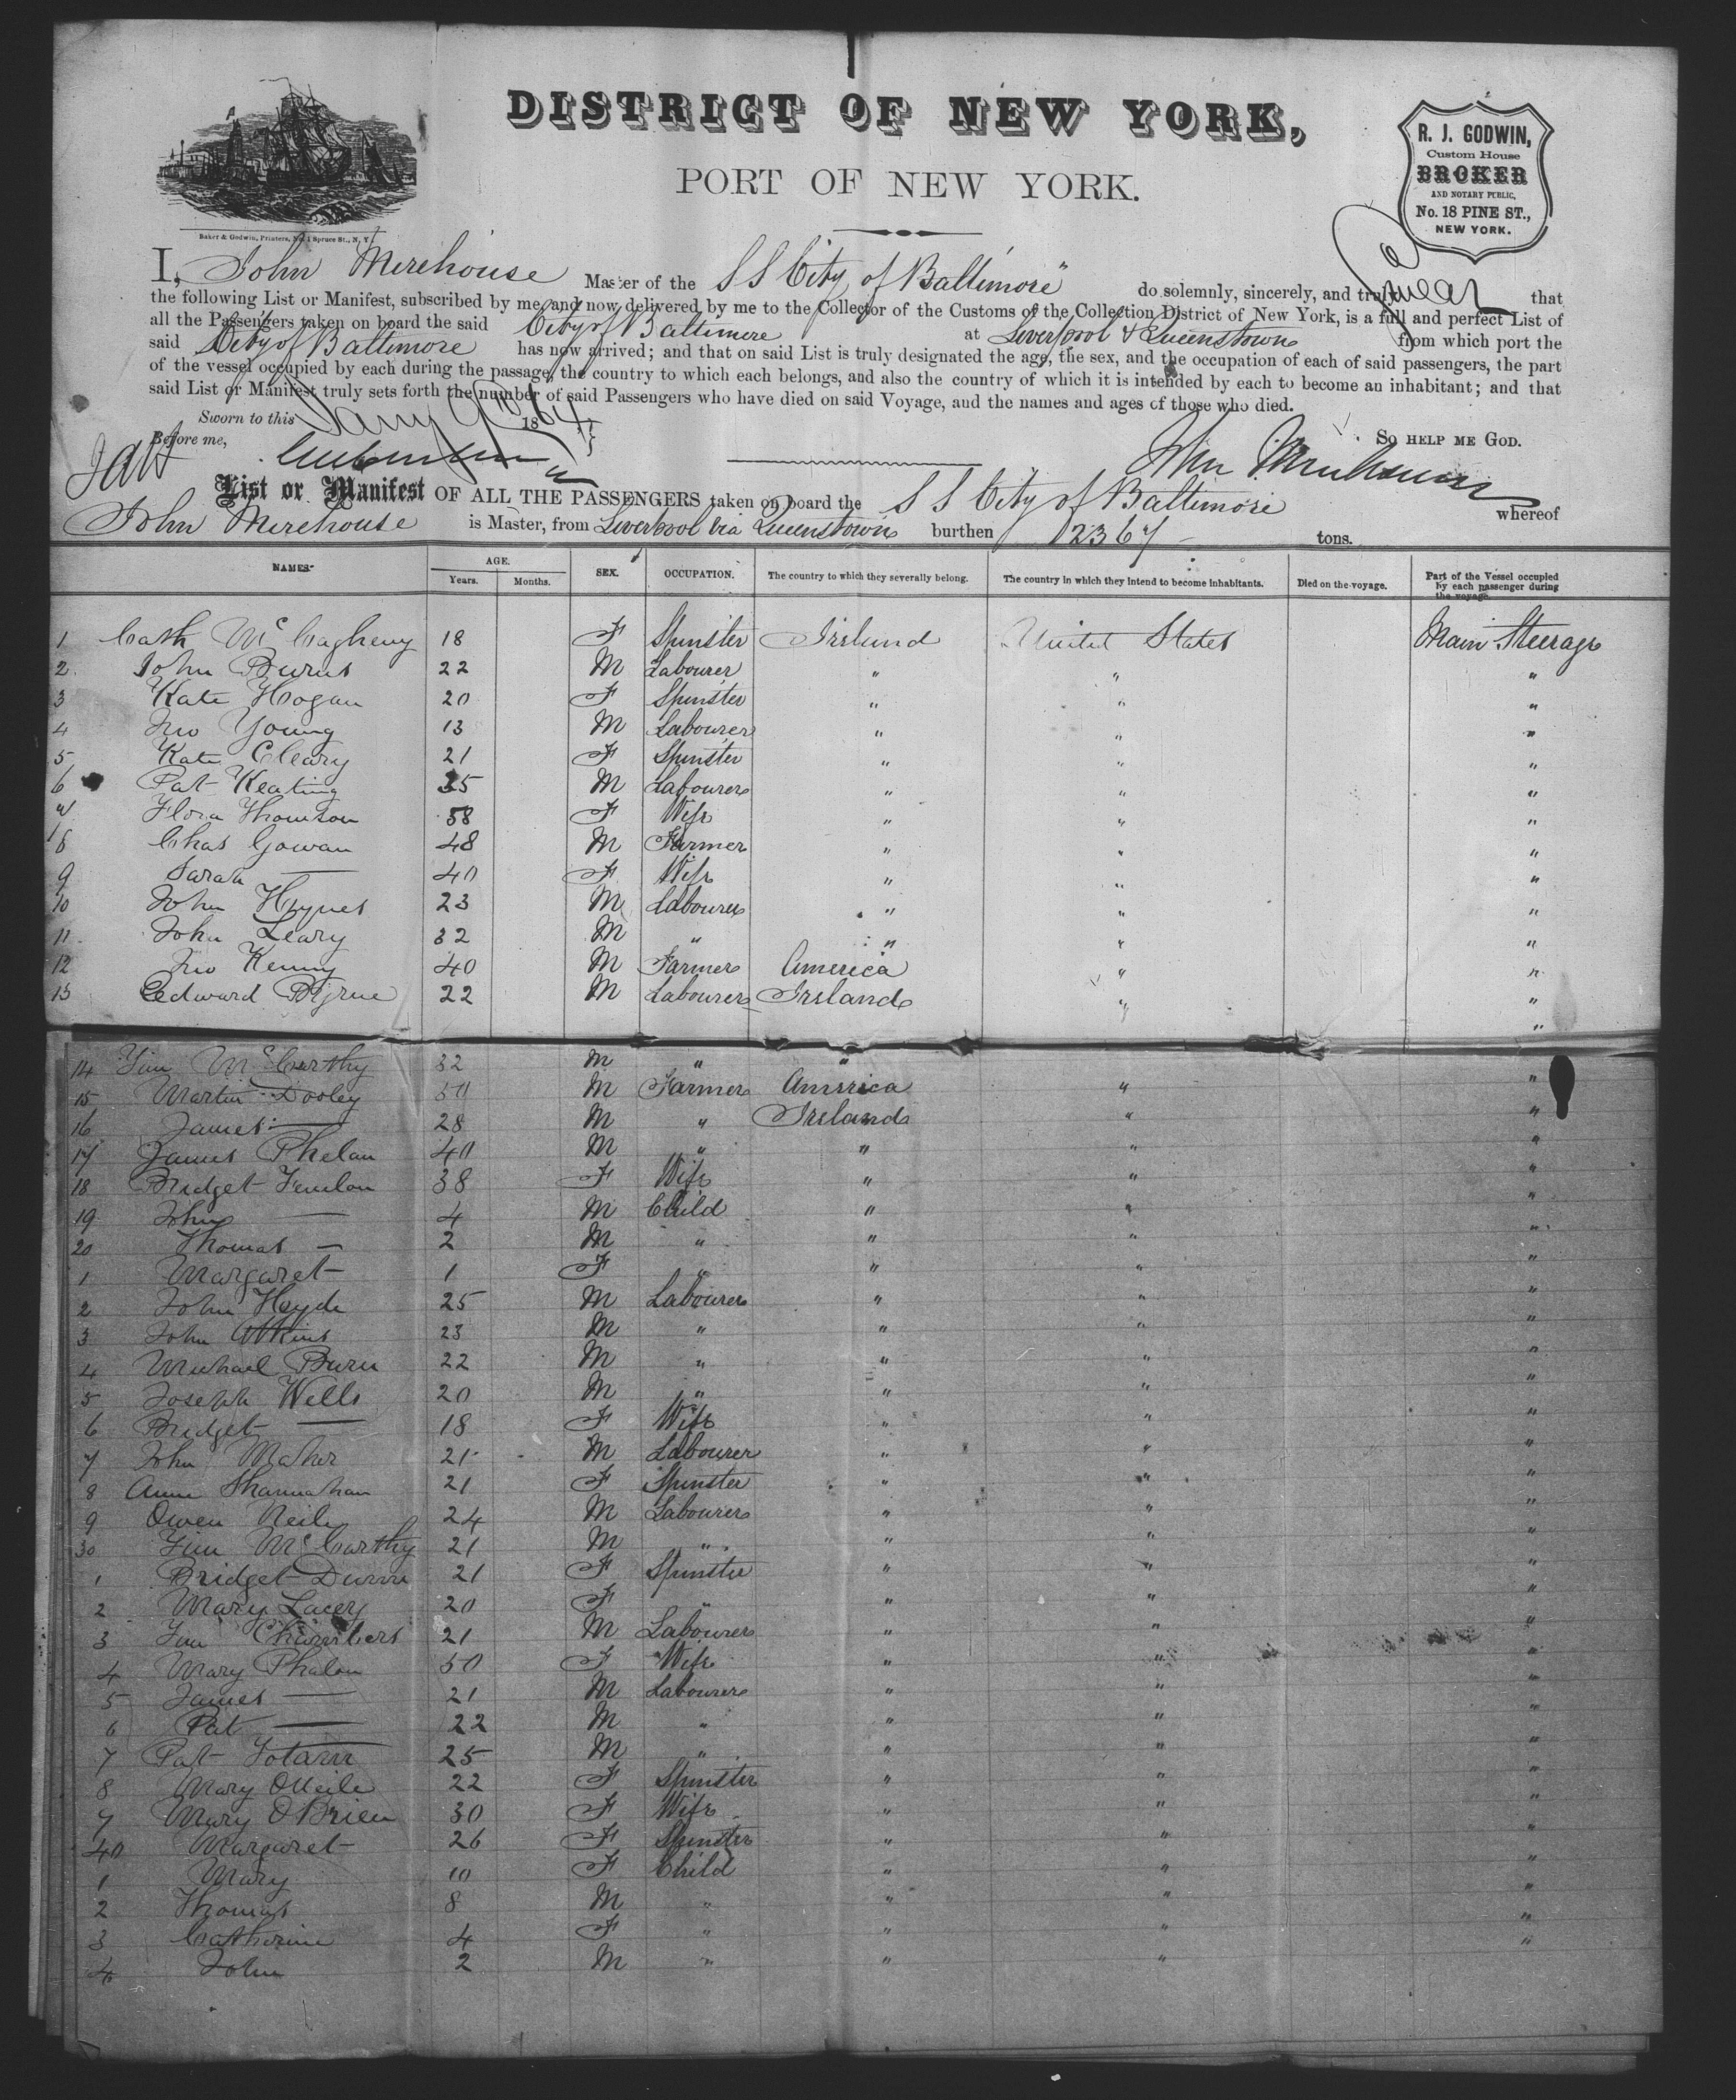 DISTRICT OF NEW YORK,
PORT OF NEW YORK.
R. J. GODWIN,
Custom House
BROKER
AND NOTARY PUBLIC,
No. 18 PINE ST.,
NEW YORK.
Baker & Godwin, Printers, No. 1 Spruce St., N. Y.
I, John Mirehouse Master of the S S City of Baltimore" do solemnly, sincerely, and truly swear that
the following List or Manifest, subscribed by me, and now delivered by me to the Collector of the Customs of the Collection District of New York, is a full and perfect List of
all the Passengers taken on board the said City of Baltimore at Liverpool & Queenstown from which port the
said City of Baltimore has now arrived; and that on said List is truly designated the age, the sex, and the occupation of each of said passengers, the part
of the vessel occupied by each during the passage, the country to which each belongs, and also the country of which it is intended by each to become an inhabitant; and that
said List or Manifest truly sets forth the number of said Passengers who have died on said Voyage, and the names and ages of those who died.
Sworn to this Jany 9th 1864
Before me, SO HELP ME GOD.
John Mirehouse
List or Manifest OF ALL THE PASSENGERS taken on board the S S City of Baltimore whereof
John Mirehouse is Master, from Liverpool via Queenstown burthen 2367 tons.
NAMES AGE. Years. Months. SEX. OCCUPATION. The country to which they severally belong. The country in which they intend to become inhabitants. Died on the voyage. Part of the Vessel occupied by each passenger during the voyage.
1 Cath McCagheny 18 F Spinster Ireland United States Main Steerage
2 John Burns 22 M Labourer " " "
3 Kate Hogan 20 F Spinster " " "
4 Jno Young 13 M Labourer " " "
5 Kate Cleary 21 F Spinster " " "
6 Pat Keating 35 M Labourer " " "
7 Flora Thomson 58 F Wife " " "
8 Chas Gowan 48 M Farmer " " "
9 Sarah — 40 F Wife " " "
10 John Hynes 23 M Labourer " " "
11 John Leary 32 M " " " "
12 Jno Kenny 40 M Farmer America " "
13 Edward Byrne 22 M Labourer Ireland " "
14 Tim McCarthy 32 M " " "
15 Martin Dooley 50 M Farmer America " "
16 James — 28 M " Ireland " "
17 James Phelan 40 M " " " "
18 Bridget Fenlon 38 F Wife " " "
19 John — 4 M Child " " "
20 Thomas — 2 M " " " "
1 Margaret — 1 F " " " "
2 John Hayde 25 M Labourer " " "
3 John Atkins 23 M " " " "
4 Michael Burn 22 M " " " "
5 Joseph Wells 20 M " " " "
6 Bridget — 18 F Wife " " "
7 John Maher 21 M Labourer " " "
8 Anne Shannahan 21 F Spinster " " "
9 Owen Neily 24 M Labourer " " "
30 Tim McCarthy 21 M " " " "
1 Bridget Dunn 21 F Spinster " " "
2 Mary Lacey 20 F " " " "
3 Jim Chambers 21 M Labourer " " "
4 Mary Phalan 50 F Wife " " "
5 James — 21 M Labourer " " "
6 Pat — 22 M " " " "
7 Pat 25 M " " " "
8 Mary ONeile 22 F Spinster " " "
9 Mary OBrien 30 F Wife " " "
40 Margaret 26 F Spinster " " "
1 Mary 10 F Child " " "
2 Thomas 8 M " " " "
3 Catherine 4 F " " " "
4 John 2 M " " " "